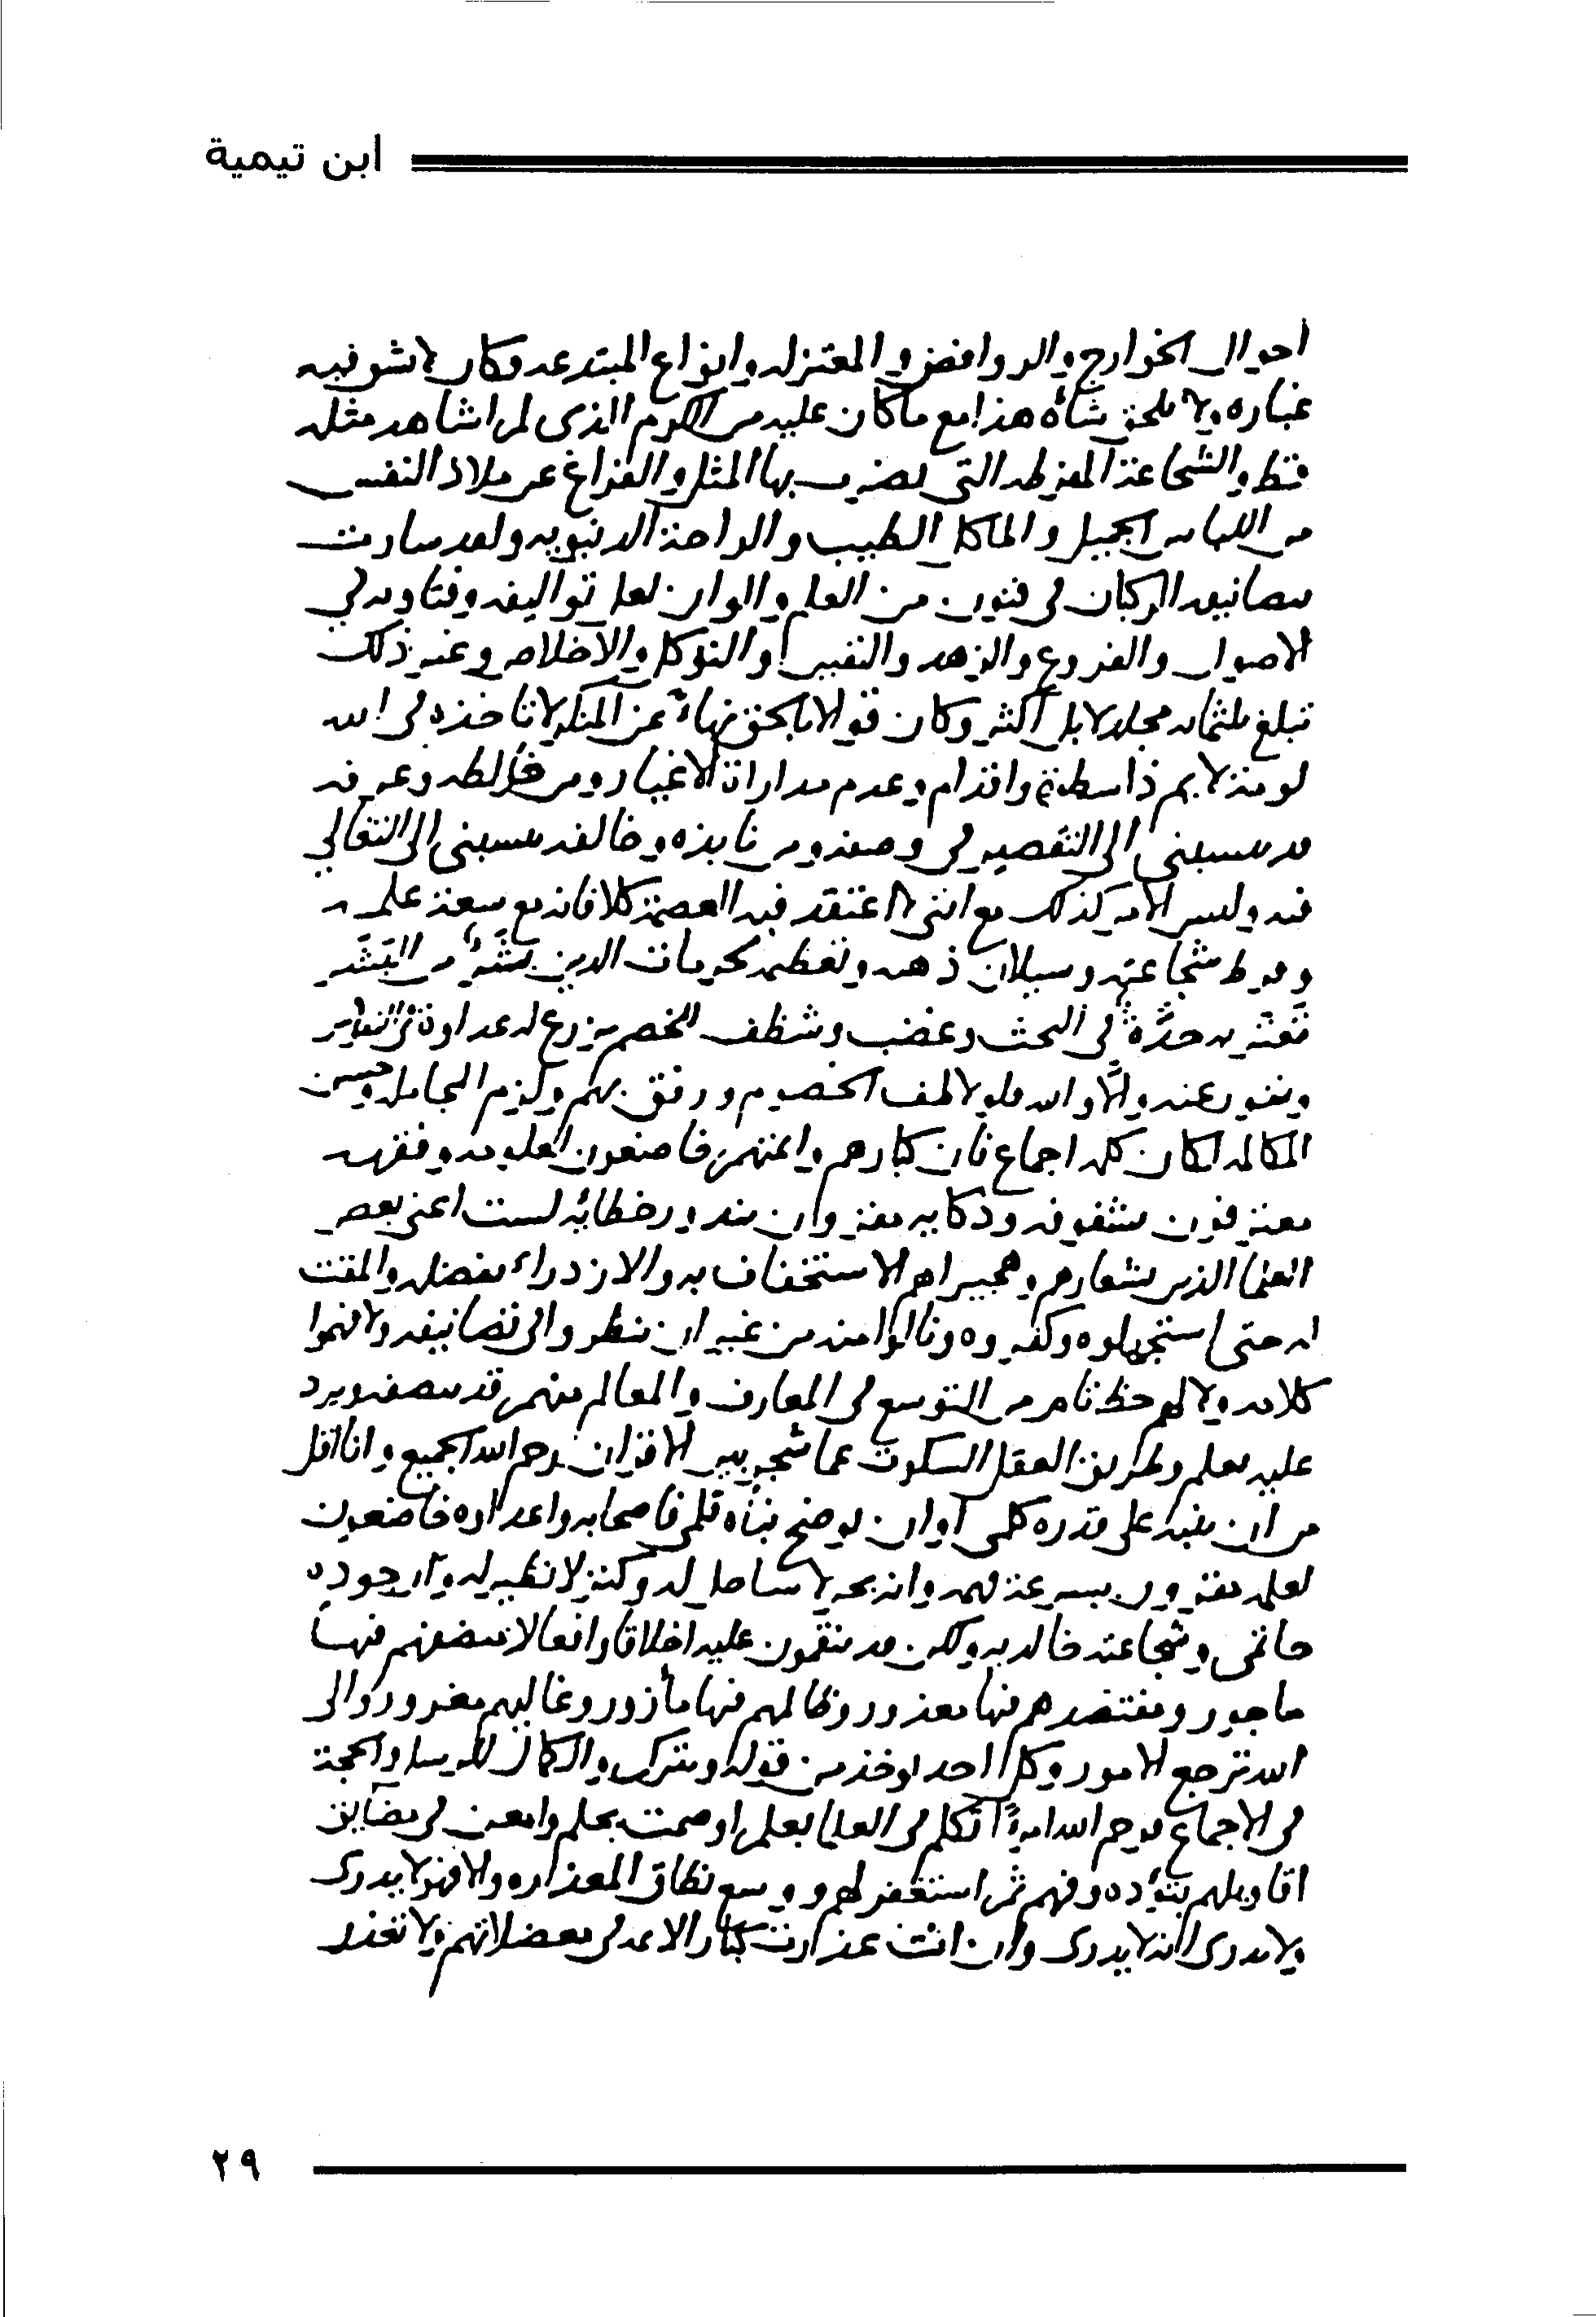 ابن تيمية
احوال الخوارج والروافض والمعتزله وانواع المبتدعه وكان لا يشق فيه
غباره ولا يلحق شأوه هذا مع ما كان عليه من الكرم الذى لم اشاهد مثله
قط والشجاعة المفرطه التى يضرب بها المثل والفراغ عن ملاذ النفس
من اللباس الجميل والماكل الطيب والراحة الدنيويه ولقد سارت
بتصانيفه الركبان فى فنون من العلم والوان لعل تواليفه وفتاويه فى
الاصول والفروع والزهد والتفسير والتوكل والاخلاص وغير ذلك
تبلغ ثلثمايه مجلد لا بل اكثر وكان قوالا بالحق نهاء عن المنكر لا تاخذه فى الله
لومة لايم ذا سطوة واقدام وعدم مداراة الاغيار ومن خالطه وعرفه
قد ينسبنى الى التقصير فى وصفه ومن نابذه وخالفه ينسبنى الى التغالى
فيه وليس الامر كذلك مع اننى لا اعتقد فيه العصمة كلا فانه مع سعة علمه
وفرط شجاعته وسيلان ذهنه وتعظيمه لحرمات الدين بشر من البشر
تعتريه حدة فى البحث وغضب وشظف للخصم يزرع له عداوة فى النفوس
ونفور عنه والا والله فلو لاطف الخصوم ورفق بهم ولزم المجامله وحسن
المكالمه لكان كلمه اجماع فان كبارهم وائمتهم خاضعون لعلومه وفقهه
معترفون بشفوفه وذكايه مقرون بندور خطائه لست اعنى بعض
العلما الذين شعارهم وهجيراهم الاستخفاف به والازدراء بفضله والمقت
له حتى استجهلوه وكفروه ونالوا منه من غير ان ينظروا فى تصانيفه ولا فهموا
كلامه ولا لهم حظ تام من التوسع فى المعارف والعالم منهم قد ينصفه ويرد
عليه بعلم وطريق العقل السكوت عما شجر بين الاقران رحم الله الجميع وانا اقل
من ان ينبه على قدره كلمى او ان يوضح نبأه قلمى فاصحابه واعداؤه خاضعون
لعلمه مقرون بسرعة فهمه وانه بحر لا ساحل له وكنز لا نظير له وان جوده
حاتمى وشجاعته خالديه ولكن قد ينقمون عليه اخلاقا وافعالا منصفهم فيها
ماجور ومقتصدهم فيها معذور وظالمهم فيها مأزور وغاليهم مغرور والى
الله ترجع الامور وكل احد يوخذ من قوله ويترك والكمال للرسل والحجة
فى الاجماع فرحم الله امرءا تكلم فى العلما بعلم او صمت بحلم وامعن فى مضايق
اقاويلهم بتؤده وفهم ثم استغفر لهم ووسع نطاق المعذره والا فهو لا يدرى
ولا يدرى انه لا يدرى وان انت عذرت كبار الائمه فى معضلاتهم ولا تعذر
٢٩